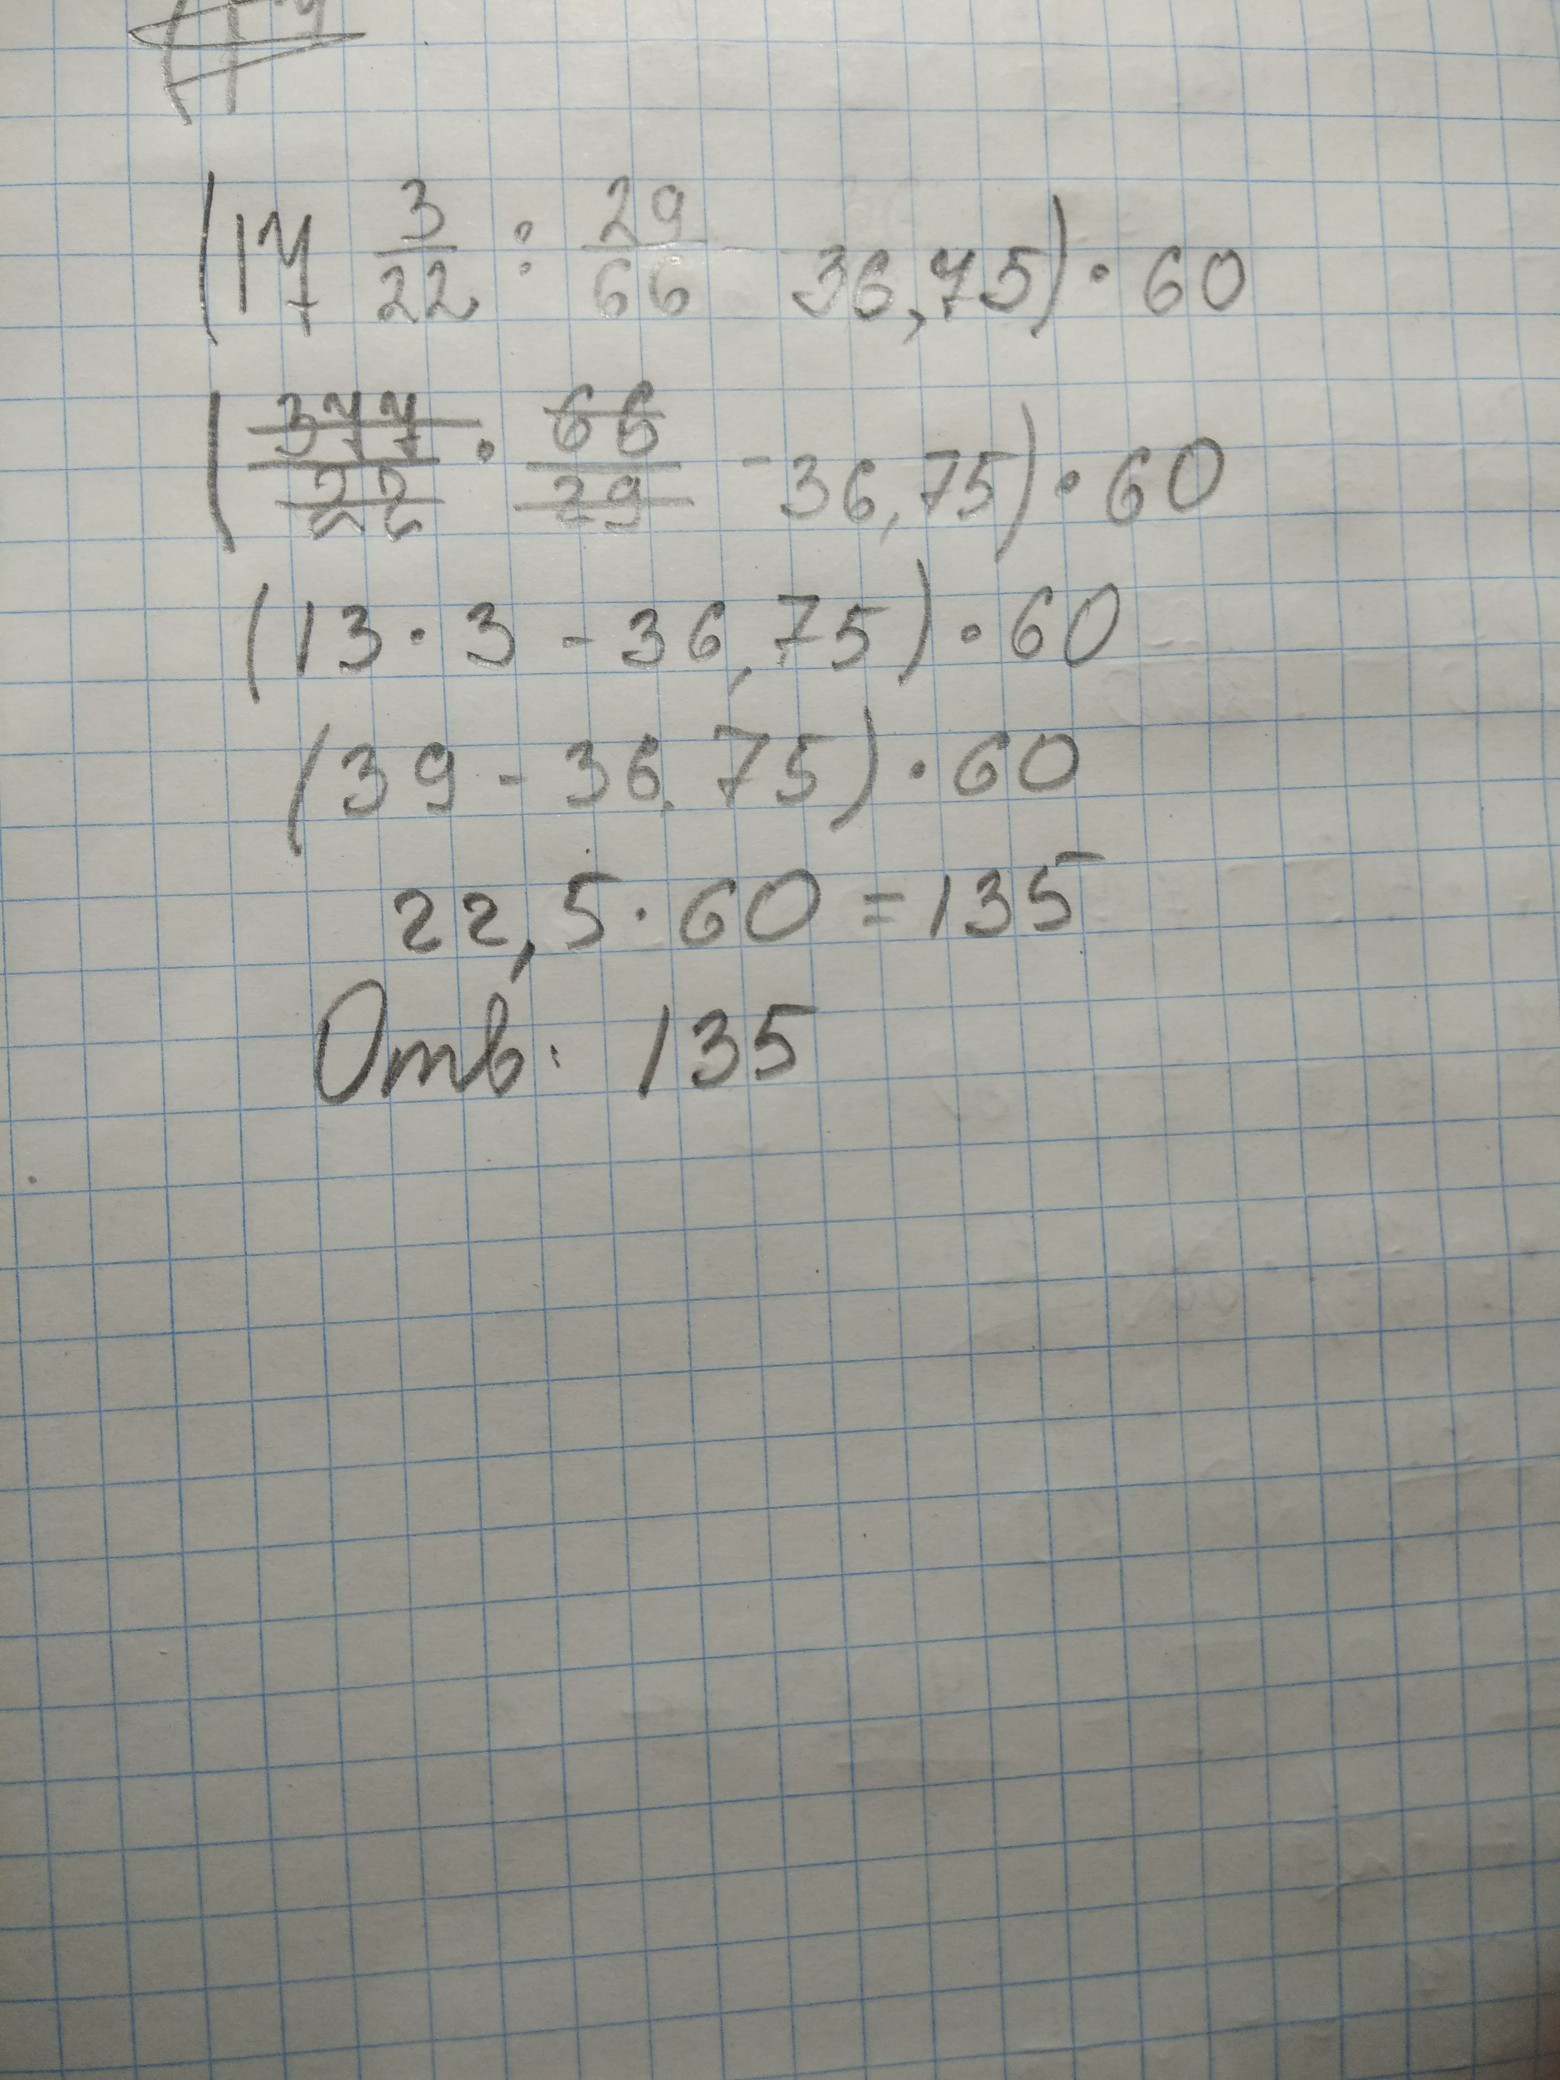 (17 3/22 : 29/66 36,75) · 60
(377/22 · 66/29 - 36,75) · 60
(13 · 3 - 36,75) · 60
(39 - 36,75) · 60
22,5 · 60 = 135
Отв: 135